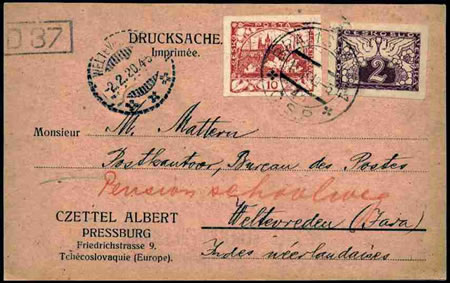 D 37
DRUCKSACHE.
Imprimée.
POSTA
ČESKO
10
2
2.2.20.4-5
Monsieur M. Mattern
Postkantoor, Bureau des Postes
Pension schoolweg
Weltevreden (Java)
Indes néerlandaises
CZETTEL ALBERT
PRESSBURG
Friedrichstrasse 9.
Tchécoslovaquie (Europe).